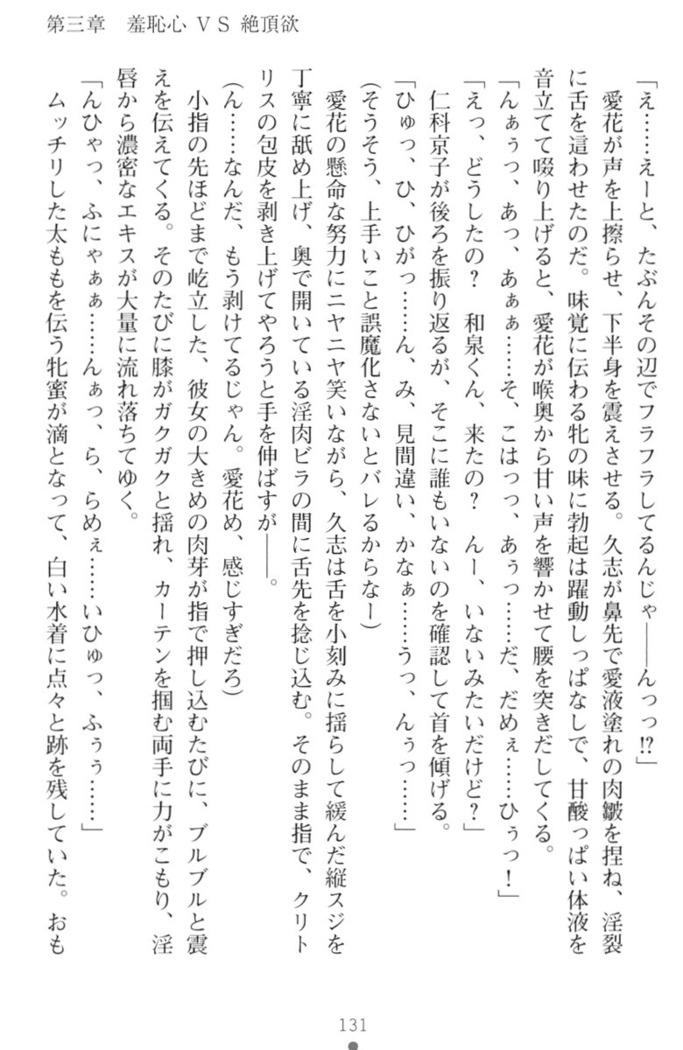 第三章　羞恥心 VS 絶頂欲
「え……えーと、たぶんその辺でフラフラしてるんじゃ――んっっ!?」
愛花が声を上擦らせ、下半身を震えさせる。久志が鼻先で愛液塗れの肉皺を捏ね、淫裂
に舌を這わせたのだ。味覚に伝わる牝の味に勃起は躍動しっぱなしで、甘酸っぱい体液を
音立てて啜り上げると、愛花が喉奥から甘い声を響かせて腰を突きだしてくる。
「んぁぅっ、あっ、あぁぁ……そ、こはっっ、あぅっ……だ、だめぇ……ひぅっ！」
「えっ、どうしたの？　和泉くん、来たの？　んー、いないみたいだけど？」
仁科京子が後ろを振り返るが、そこに誰もいないのを確認して首を傾げる。
「ひゅっ、ひ、ひがっ……ん、み、見間違い、かなぁ……うっ、んぅっ……」
(そうそう、上手いこと誤魔化さないとバレるからなー)
愛花の懸命な努力にニヤニヤ笑いながら、久志は舌を小刻みに揺らして緩んだ縦スジを
丁寧に舐め上げ、奥で開いている淫肉ビラの間に舌先を捻じ込む。そのまま指で、クリト
リスの包皮を剥き上げてやろうと手を伸ばすが――。
(ん……なんだ、もう剥けてるじゃん。愛花め、感じすぎだろ)
小指の先ほどまで屹立した、彼女の大きめの肉芽が指で押し込むたびに、ブルブルと震
えを伝えてくる。そのたびに膝がガクガクと揺れ、カーテンを掴む両手に力がこもり、淫
唇から濃密なエキスが大量に流れ落ちてゆく。
「んひゃっ、ふにゃぁぁ……んぁっ、ら、らめぇ……いひゅっ、ふぅぅ……」
ムッチリした太ももを伝う牝蜜が滴となって、白い水着に点々と跡を残していた。おも
131